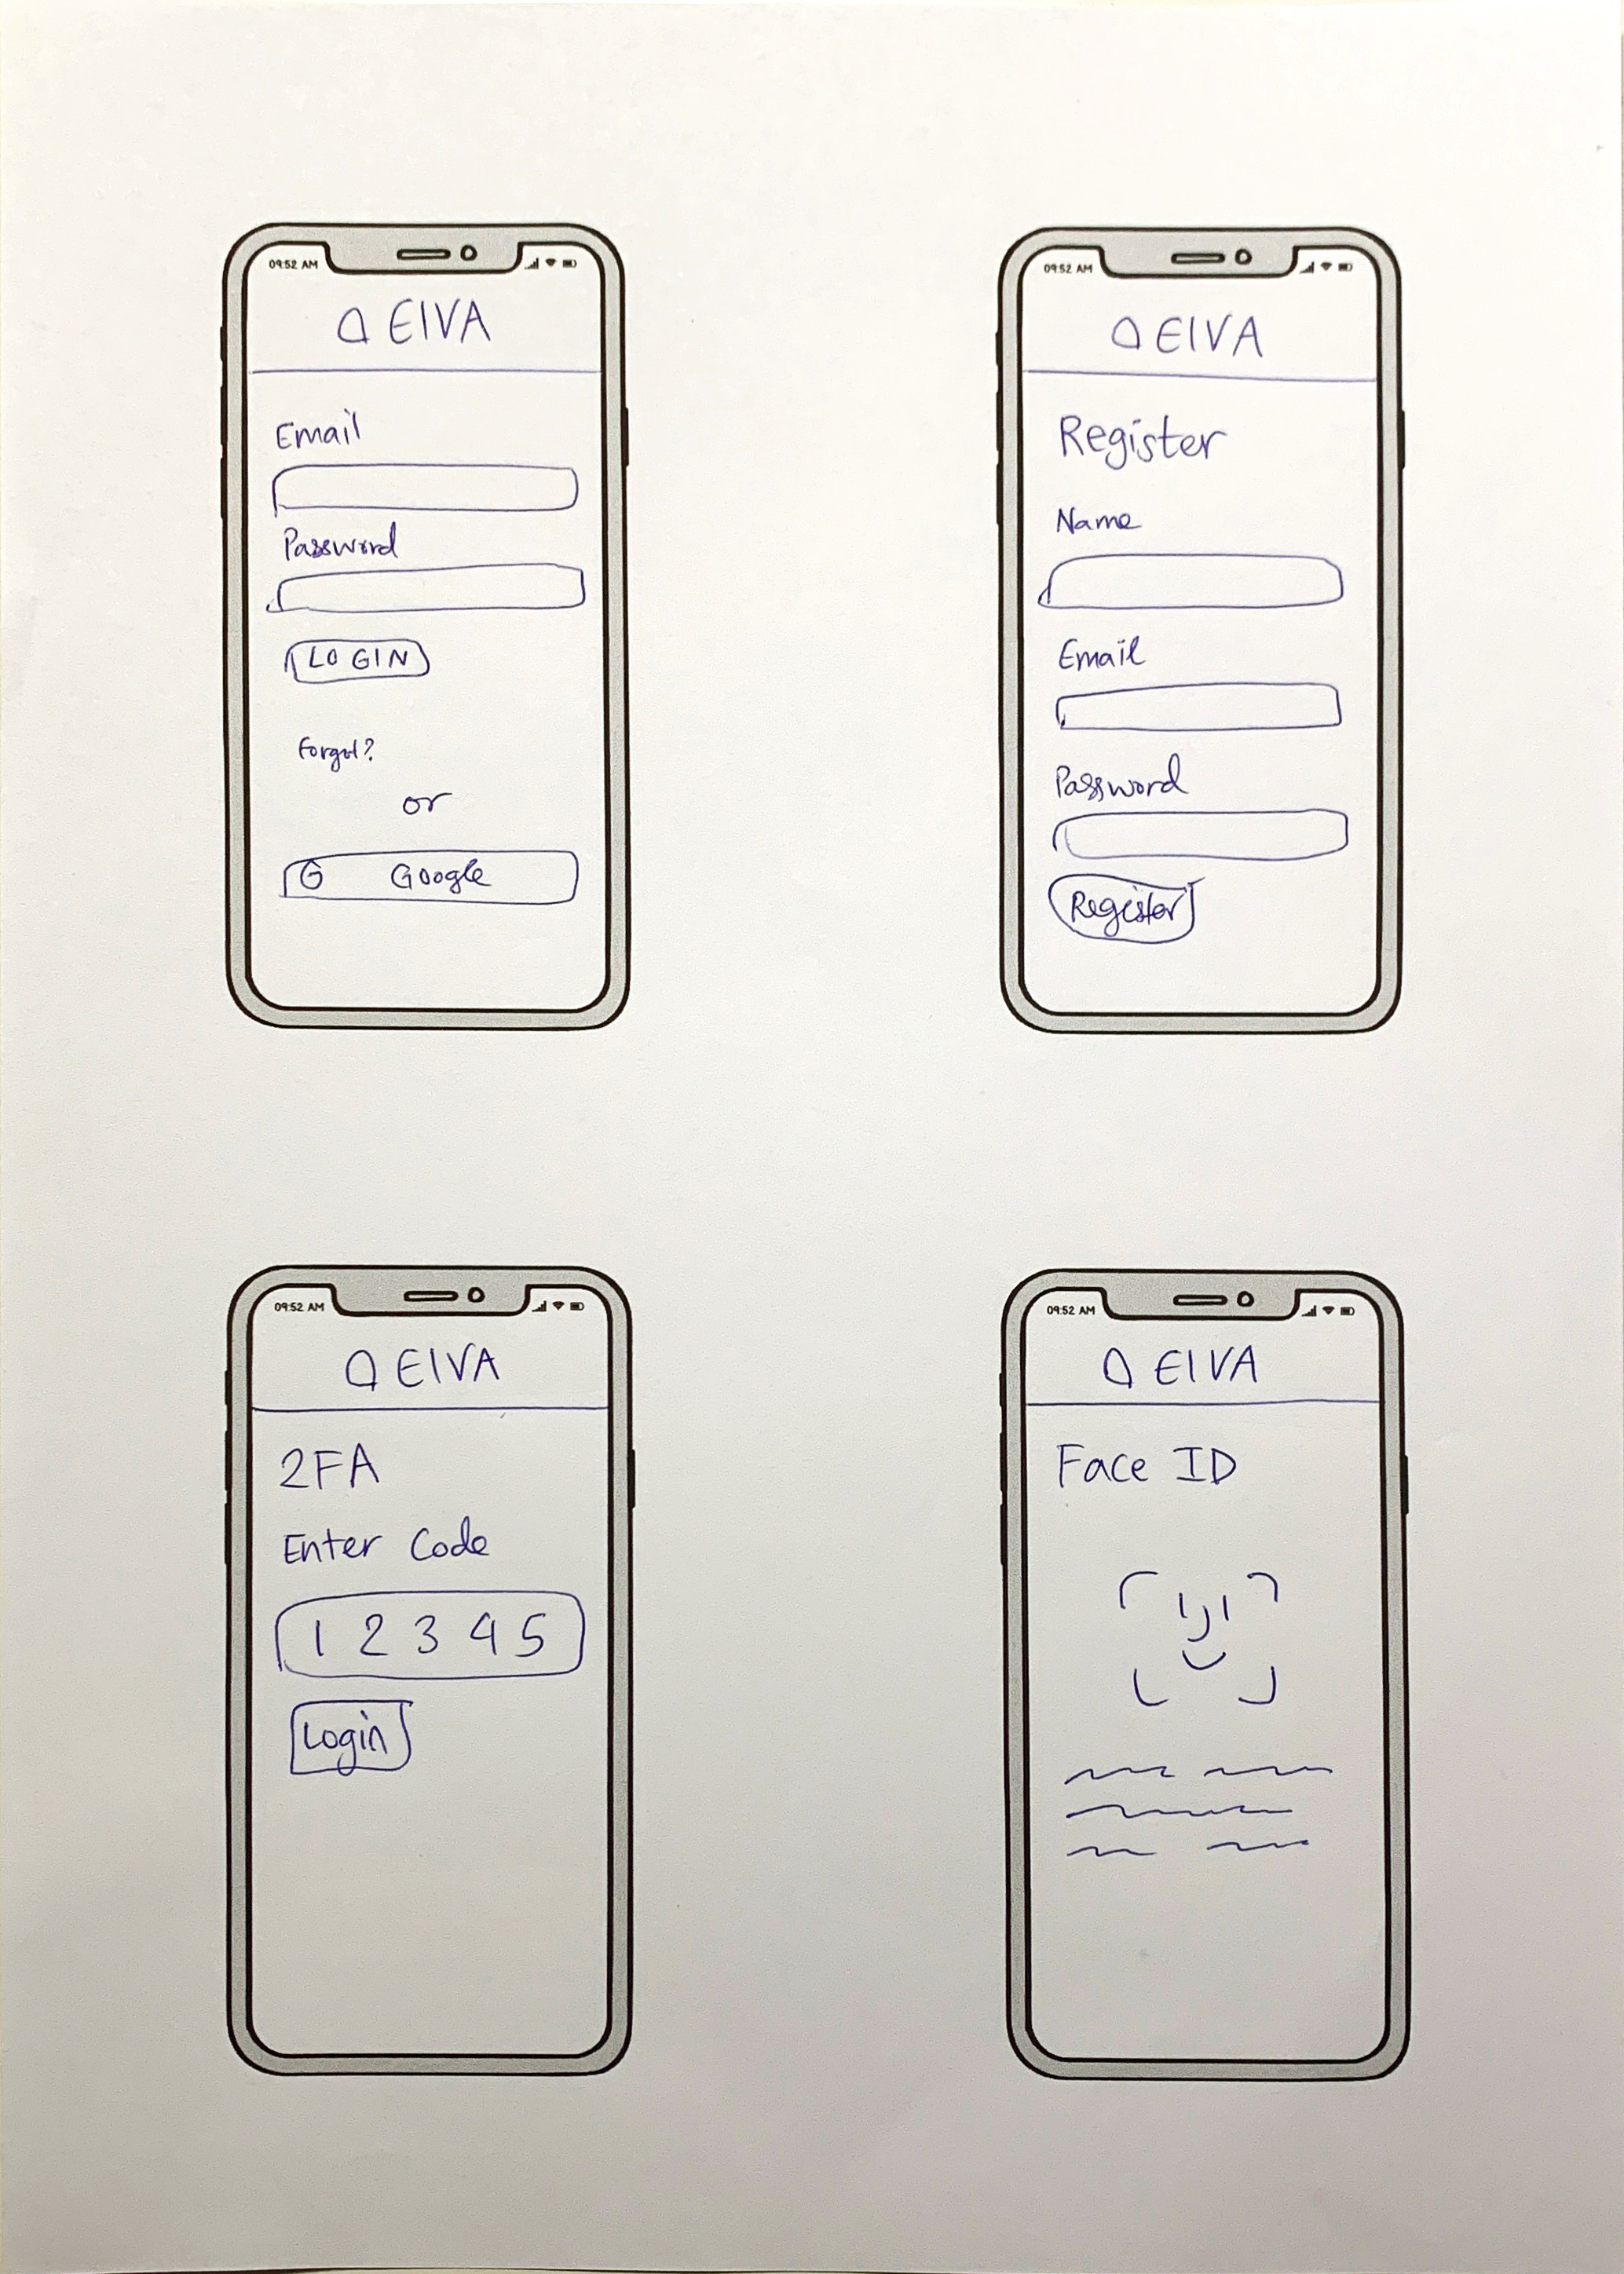 09:52 AM
EIVA
Email
Password
LOGIN
Forgot?
or
G Google
09:52 AM
EIVA
Register
Name
Email
Password
Register
09:52 AM
EIVA
2FA
Enter Code
1 2 3 4 5
Login
09:52 AM
EIVA
Face ID